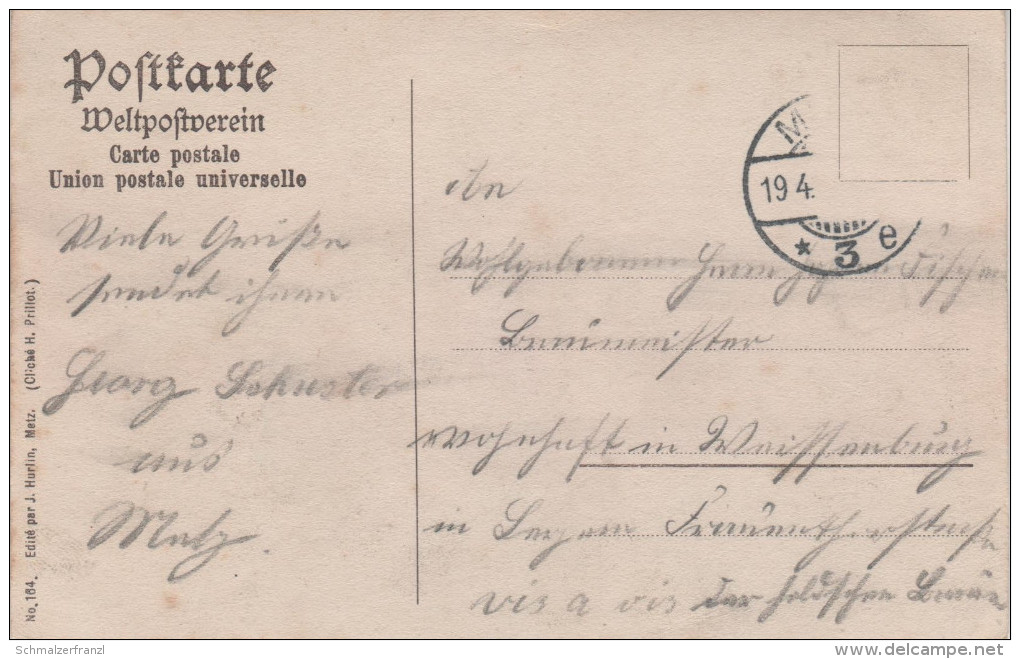 Postkarte
Weltpostverein
Carte postale
Union postale universelle
Viele Grüße
sendet ihnen
Georg Schuster
aus
Metz.
M
19 4.
* 3 e
An
Wohlgeboren Herrn Fischer
Braumeister
wohnhaft in Weissenburg
in Frauenthorstraße
vis a vis der
No. 164. Edité par J. Hurlin, Metz. (Cliché H. Prillot.)
Schmalzerfranzl
delcampe.net